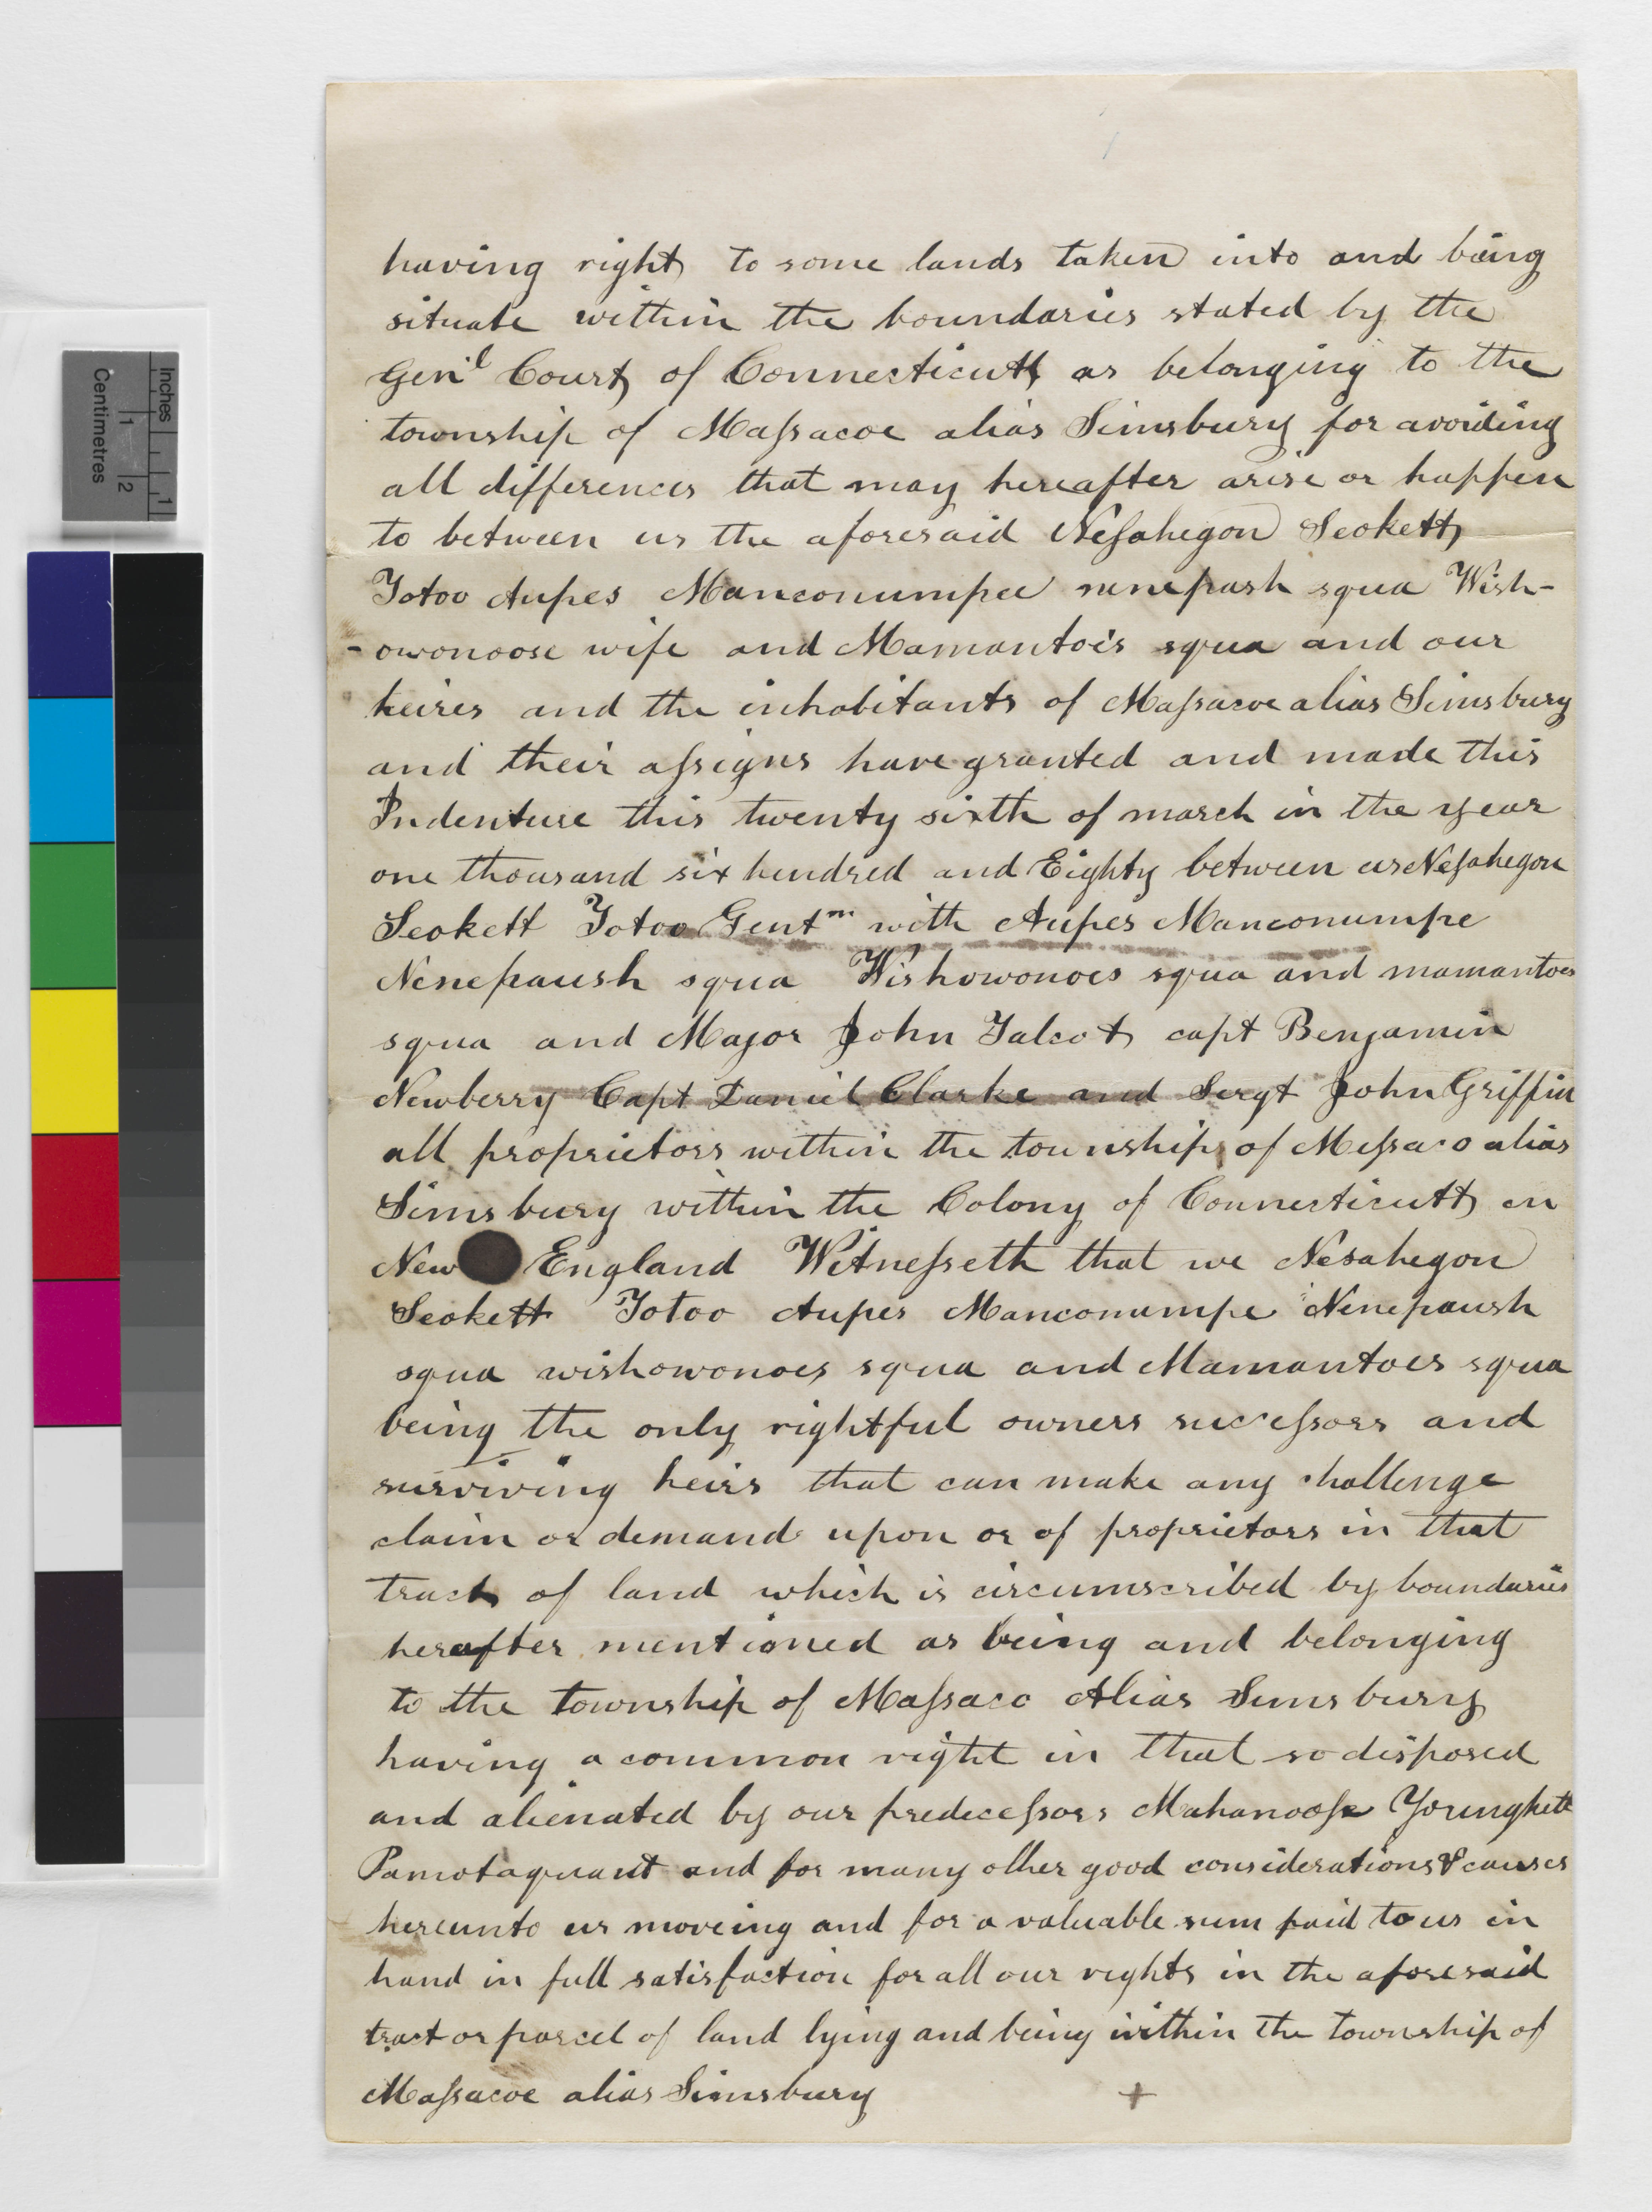 having right to some lands taken into and being
situate within the boundaries stated by the
Gen'l Court of Connecticutt as belonging to the
township of Maſsacoe alias Simsbury for avoiding
all differences that may hereafter arise or happen
to between us the aforesaid Neſahegon Seokett
Totoo Aupes Manconumpee nenepash squa Wish-
-owonoose wife and Mamantoes squa and our
heires and the inhabitants of Maſsacoe alias Simsbury
and their aſsigns have granted and made this
Indenture this twenty sixth of march in the year
one thousand six hundred and Eighty between us Neſahegon
Seokett Totoo Gentm with Aupes Manconumpe
Nenepaush squa Wishowonoes squa and mamantoes
squa and Major John Talcot capt Benjamin
Newberry Capt Daniel Clarke and Sergt John Griffin
all proprietors within the township of Meſsaco alias
Simsbury within the Colony of Connecticutt in
New England Witneſseth that we Nesahegon
Seokett Totoo Aupes Manconumpe Nenepaush
squa wishowonoes squa and Mamantoes squa
being the only rightful owners succeſsors and
surviving heirs that can make any challenge
claim or demand upon or of proprietors in that
track of land which is circumscribed by boundaries
hereafter mentioned as being and belonging
to the township of Maſsaco Alias Simsbury
having a common right in that so disposed
and alienated by our predeceſsors Mahanooſe
Pamotaquant and for many other good considerations & causes
hereunto us moveing and for a valuable sum paid to us in
hand in full satisfaction for all our rights in the aforesaid
tract or parcel of land lying and being within the township of
Maſsacoe alias Simsbury +
Inches
1
Centimetres
1
2